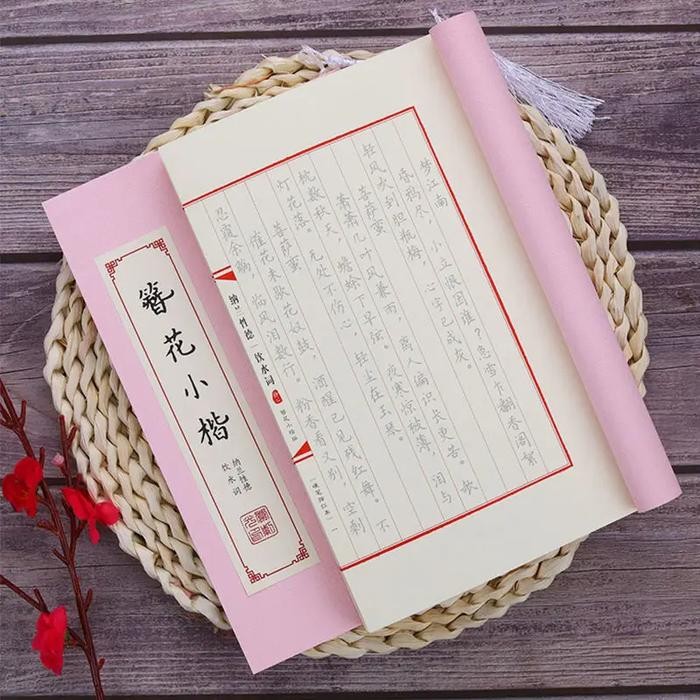 梦江南
昏鸦尽，小立恨因谁？急雪乍翻香阁絮，
轻风吹到胆瓶梅，心字已成灰。
菩萨蛮
萧萧几叶风兼雨，离人偏识长更苦。欹
枕数秋天，蟾蜍下早弦。夜寒惊被薄，泪与
灯花落。无处不伤心，轻尘在玉琴。
菩萨蛮
催花未歇花奴鼓，酒醒已见残红舞。不
忍覆余觞，临风泪数行。粉香看又别，空剩
纳兰性德 | 饮水词
簪花小楷
簪花小楷
纳兰性德
饮水词